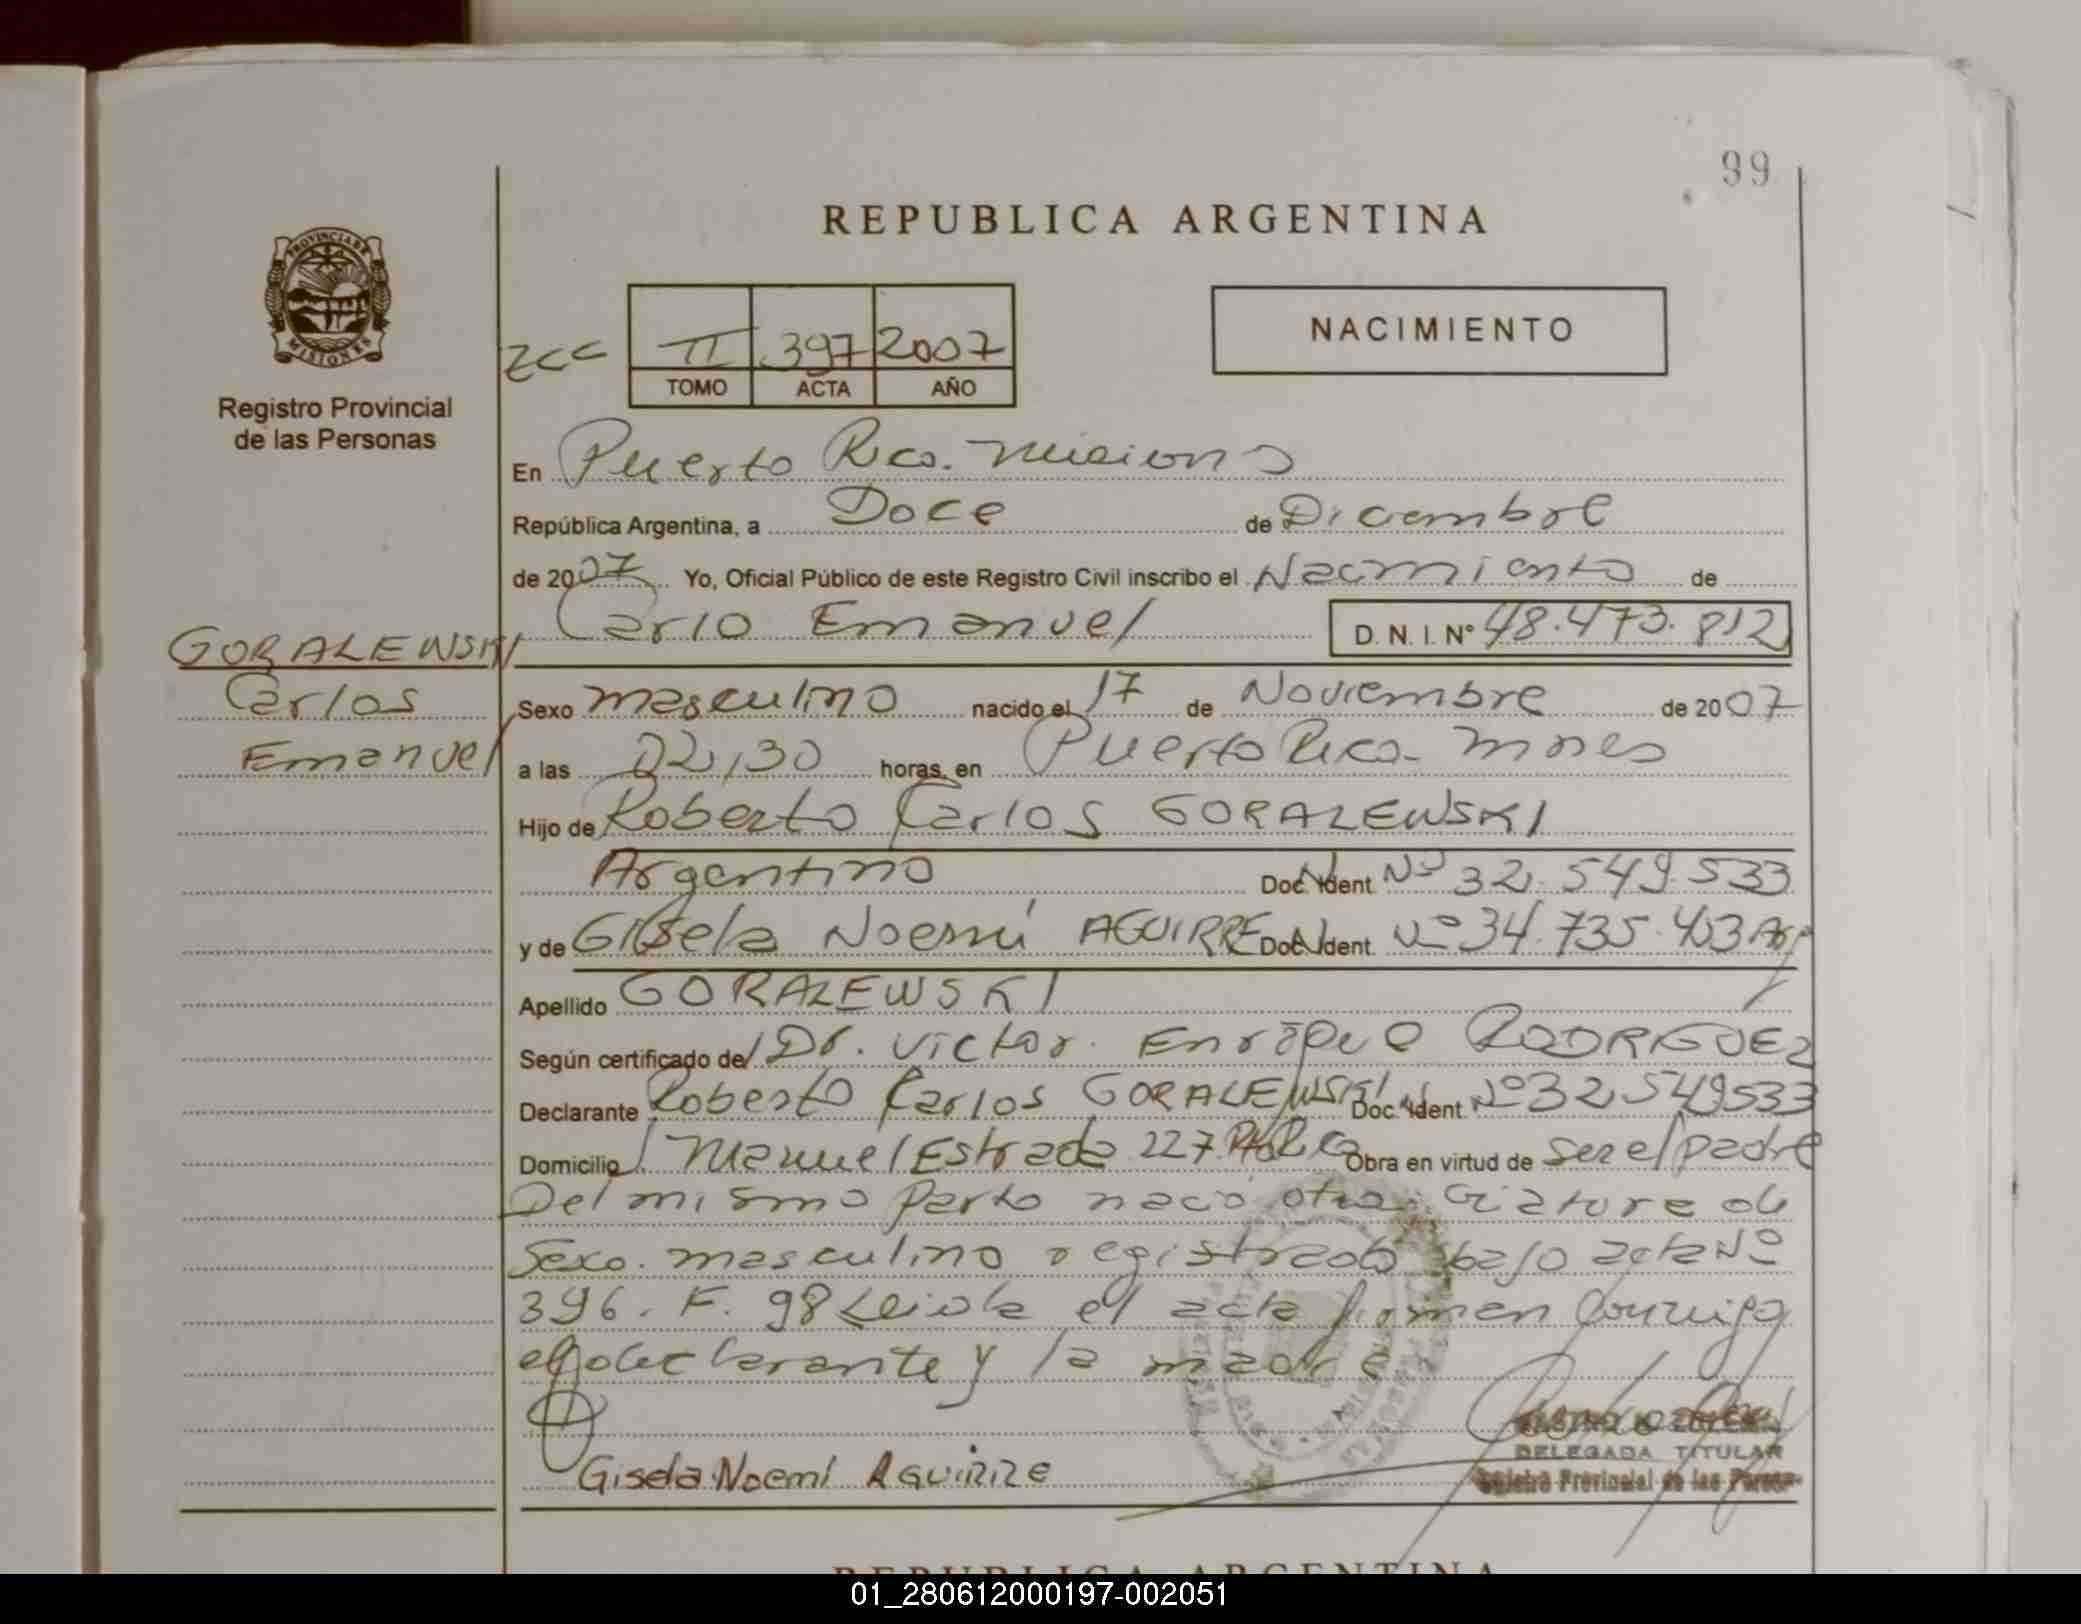 99
REPUBLICA ARGENTINA
PROVINCIA DE
MISIONES
Registro Provincial
de las Personas
NACIMIENTO
II 397 2007
TOMO ACTA AÑO
En Puerto Rico. Misiones
República Argentina, a Doce de Diciembre
de 2007 Yo, Oficial Público de este Registro Civil inscribo el Nacimiento de
Carlo Emanuel D. N. I. Nº 48.473.812
GORALEWSKI
Carlos
Emanuel
Sexo masculino nacido el 17 de Noviembre de 2007
a las 22,30 horas, en Puerto Rico - Mnes
Hijo de Roberto Carlos GORALEWSKI
Argentino Doc. Ident. Nº 32.549.533
y de Gisela Noemí AGUIRRE Doc. Ident. Nº 34.735.453 Arg
Apellido GORALEWSKI
Según certificado del Dr. Victor Enrique RODRIGUEZ
Declarante Roberto Carlos GORALEWSKI Doc. Ident. Nº 32549533
Domicilio Manuel Estrada 227 Pto Rico Obra en virtud de ser el padre
Del mismo parto nació otra criatura de
sexo. masculino registrado bajo acta Nº
396. F. 98 Leida el acta firman conmigo
el declarante y la madre
Gisela Noemí AGUIRRE
DELEGADA TITULAR
Provincial de las Person
REPUBLICA ARGENTINA
01_280612000197-002051